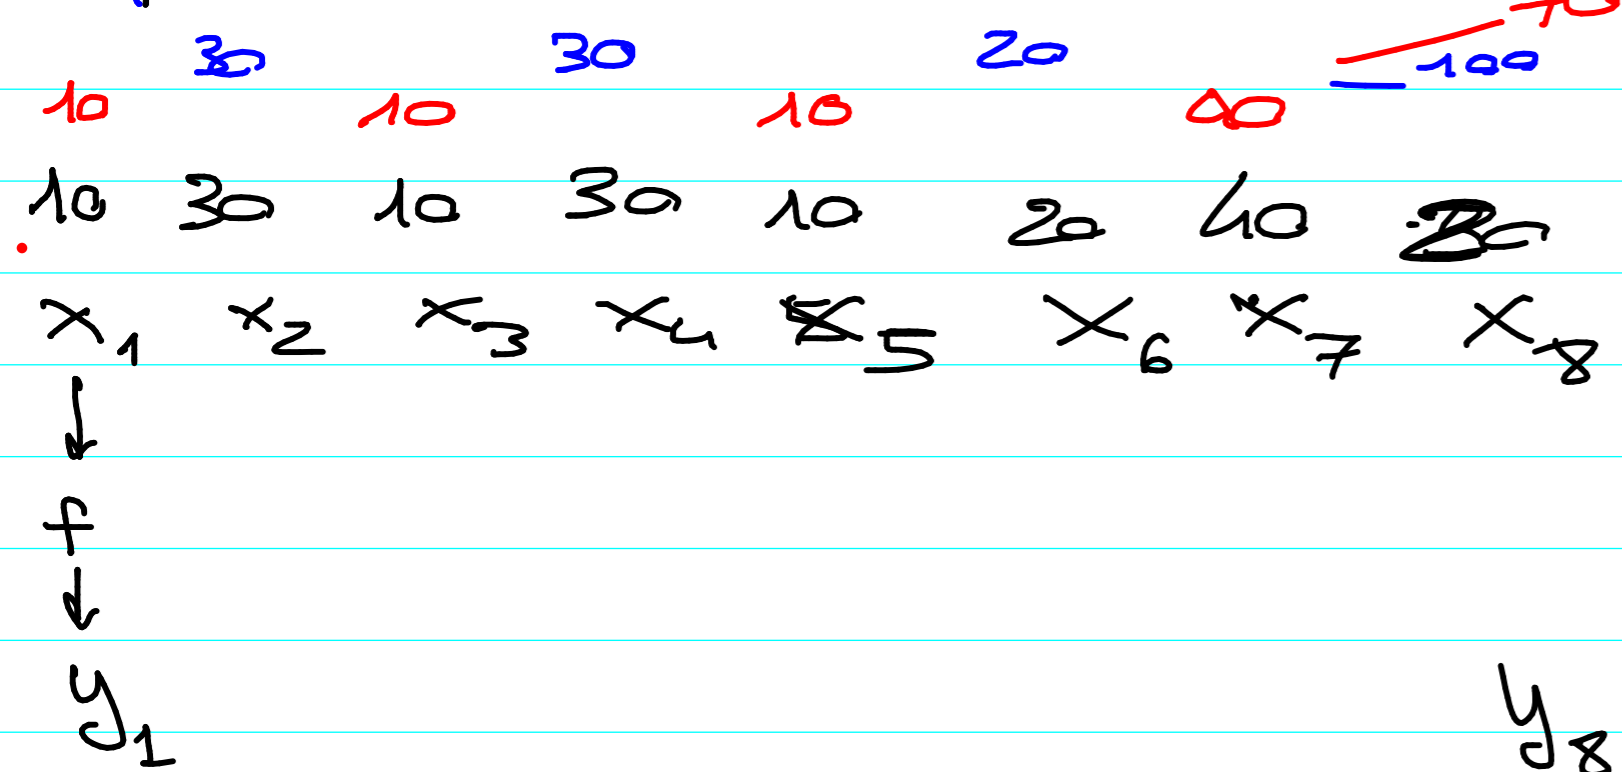 30 30 20 100
10 10 10 40
10 30 10 30 10 20 40
x₁ x₂ x₃ x₄ x₅ x₆ x₇ x₈
↓
f
↓
y₁ y₈